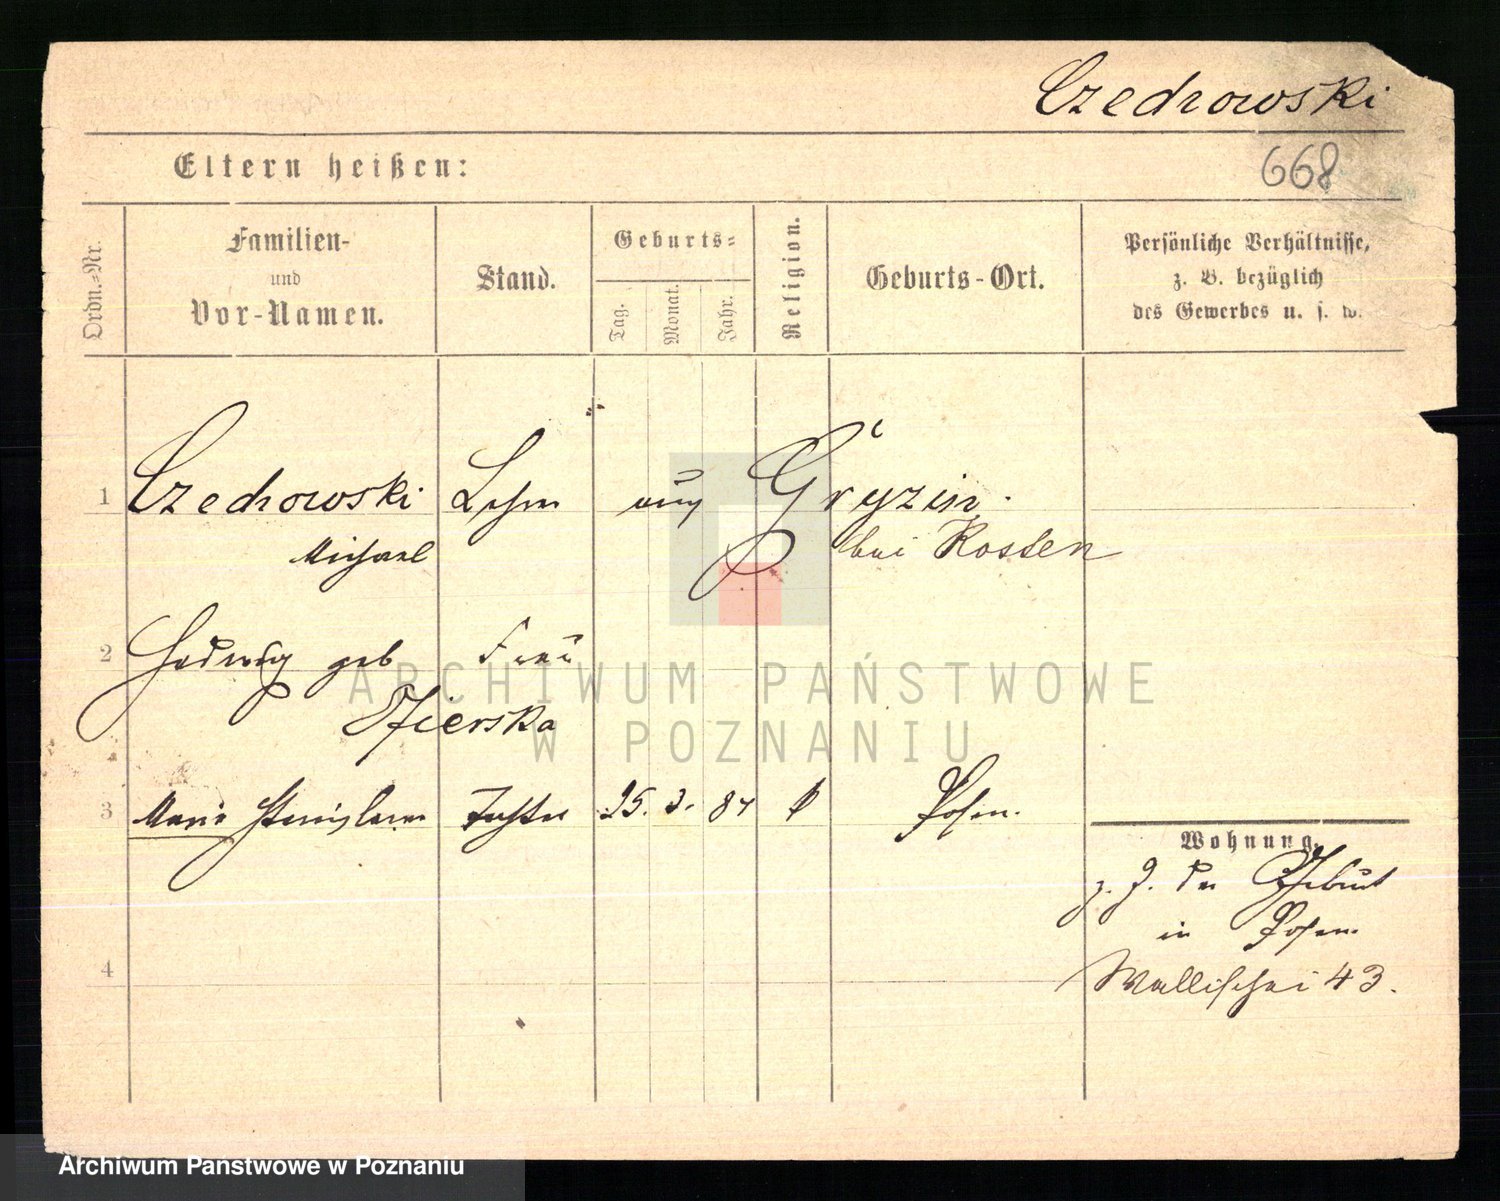 Czedrowski
Eltern heißen:
668
Ordn.-Nr.
Familien-
und
Vor-Namen.
Stand.
Geburts-
Tag.
Monat.
Jahr.
Religion.
Geburts-Ort.
Persönliche Verhältnisse,
z. B. bezüglich
des Gewerbes u. s. w.
1 Czedrowski aus Gryzin.
Michael bei Kosten
2 Hedwig geb Frau
Ofierska
3 Marie Stanislawa Tochter 25. 3. 87 k Posen.
Wohnung.
z. Z. der Geburt
in Posen
Wallischei 43.
4
ARCHIWUM PAŃSTWOWE
W POZNANIU
Archiwum Państwowe w Poznaniu